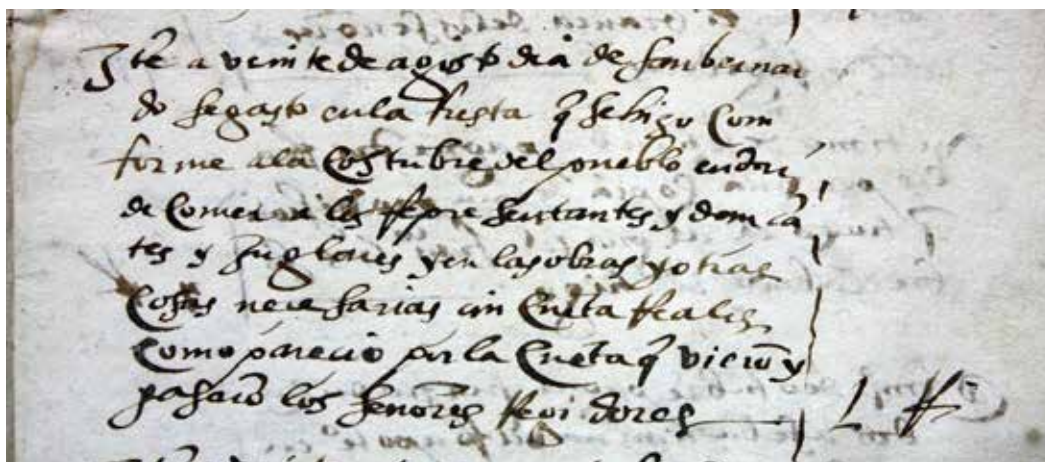 Ite a veinte de agosto dia de san bernar
do se gasto en la fiesta q se hizo com
forme a la costubre del pueblo en dar
de comer a los representantes y dança
tes y juglares y en las obras y otras
cosas necesarias cin cueta reales
como parecio por la cueta q vierõ y
pasarõ los señores regidores L rs